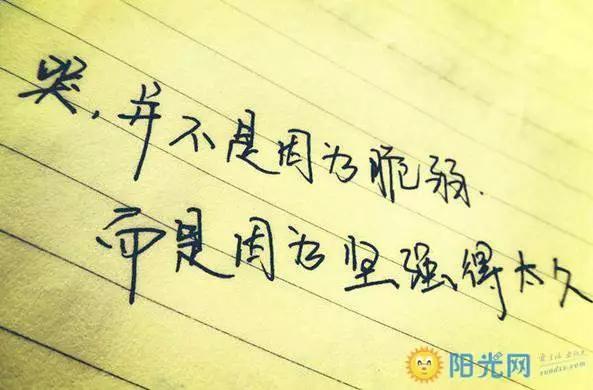 哭,并不是因为脆弱.
而是因为坚强得太久
阳光网